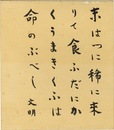 京はつに稀に来
りて食ふだにか
くうまきくふは
命のぶべし 文明